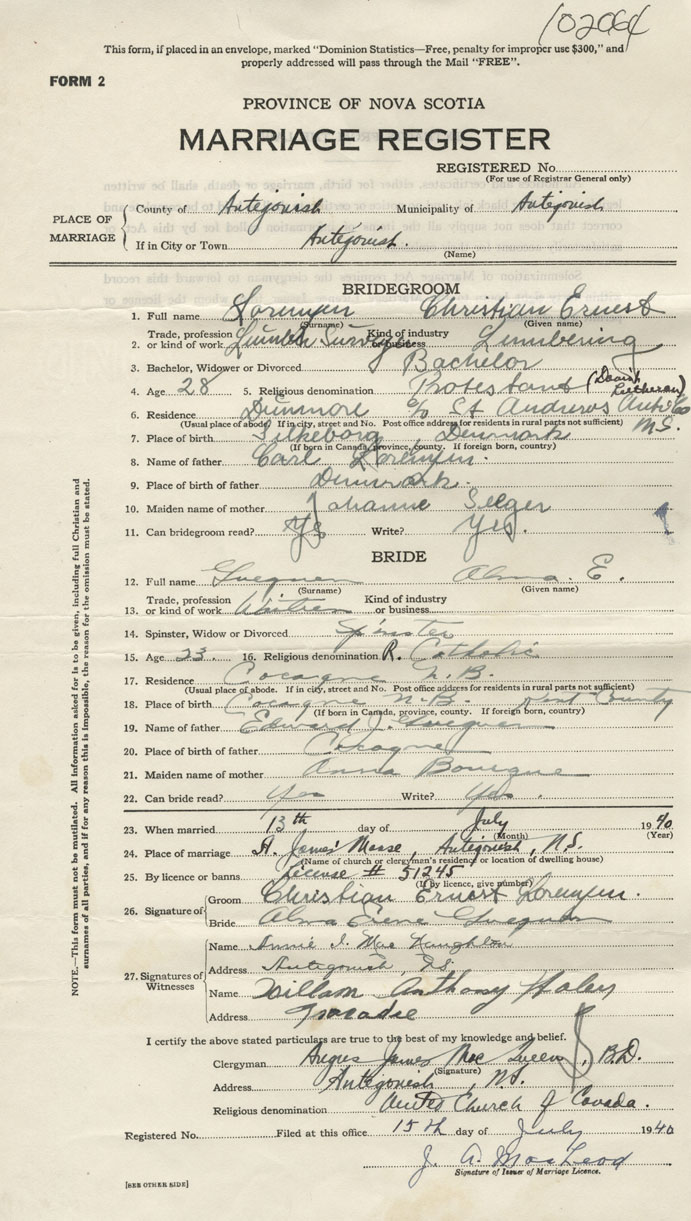 10206
This form, if placed in an envelope, marked "Dominion Statistics—Free, penalty for improper use $300," and
properly addressed will pass through the Mail "FREE".
FORM 2
PROVINCE OF NOVA SCOTIA
MARRIAGE REGISTER
REGISTERED No.
(For use of Registrar General only)
PLACE OF MARRIAGE
County of Antigonish Municipality of Antigonish
If in City or Town Antigonish.
(Name)
BRIDEGROOM
1. Full name Lorenzen Christian Ernest
(Surname) (Given name)
Trade, profession Kind of industry
2. or kind of work Lumber Surveyor or business Lumbering
3. Bachelor, Widower or Divorced Bachelor
4. Age 28 5. Religious denomination Protestant (Danish Lutheran)
6. Residence Dunmore c/o St Andrews Anti Co N.S.
(Usual place of abode. If in city, street and No. Post office address for residents in rural parts not sufficient)
7. Place of birth Silkeborg, Denmark
(If born in Canada, province, county. If foreign born, country)
8. Name of father Carl Lorenzen.
9. Place of birth of father Denmark.
10. Maiden name of mother Johanne Seeger
11. Can bridegroom read? Yes Write? Yes.
BRIDE
12. Full name Gueguen Alma. E.
(Surname) (Given name)
Trade, profession Kind of industry
13. or kind of work Waitress or business
14. Spinster, Widow or Divorced Spinster
15. Age 23 16. Religious denomination R. Catholic
17. Residence Cocagne N.B.
(Usual place of abode. If in city, street and No. Post office address for residents in rural parts not sufficient)
18. Place of birth Cocagne N.B. Kent County
(If born in Canada, province, county. If foreign born, country)
19. Name of father Edward J. Gueguen
20. Place of birth of father Cocagne
21. Maiden name of mother Anna Bourque
22. Can bride read? Yes Write? Yes.
23. When married 13th day of July 1940
(Month) (Year)
24. Place of marriage St. James' Manse, Antigonish, N.S.
(Name of church or clergyman's residence or location of dwelling house)
25. By licence or banns License # 51245
(If by licence, give number)
26. Signature of Groom Christian Ernest Lorenzen.
Bride Alma Erene Gueguen
27. Signatures of Witnesses
Name Annie I. MacNaughton
Address Antigonish, N.S.
Name William Anthony
Address Tracadie
I certify the above stated particulars are true to the best of my knowledge and belief.
Clergyman Angus James MacQueen, B.D.
(Signature)
Address Antigonish, N.S.
Religious denomination United Church of Canada.
Registered No. Filed at this office 15th day of July 1940
J. A. MacLeod
Signature of Issuer of Marriage Licence.
[SEE OTHER SIDE]
NOTE.—This form must not be mutilated. All information asked for is to be given, including full Christian and
surnames of all parties, and if for any reason this is impossible, the reason for the omission must be stated.